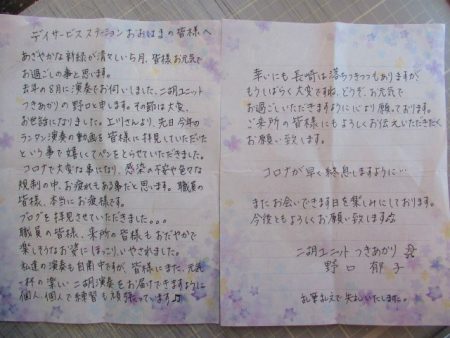 デイサービスステーション おおはまの皆様へ
あざやかな新緑が清々しい5月、皆様お元気で
お過ごしの事と思います。
去年の8月に演奏でお伺いしました、二胡ユニット
つきあかりの野口と申します。その節は大変、
お世話になりました。上川さんより、先日 今年の
ランタン演奏の動画を皆様に拝見していただいた
という事で嬉しくてペンをとらせていただきました。
コロナで大変な事になり、感染の不安や色々な
規制の中、お疲れもある事だと思います。職員の
皆様、本当にお疲様です。
ブログを拝見させていただきました。。。
職員の皆様、来所の皆様もおだやかで
楽しそうなお姿にほっこり、いやされました。
私達の演奏も自粛中ですが、皆様にまた、元気
一杯の楽しい二胡演奏をお届けできますように
個人、個人で練習も頑張っています♪
幸いにも長崎は落ちつきつつもありますが
もうしばらく大変ですね。どうぞ、お元気で
お過ごしいただきますように心より願っております。
ご来所の皆様にもよろしくお伝えいただきたく
お願い致します。
コロナが早く終息しますように…
またお会いできます日を楽しみにしております。
今後ともよろしくお願い致します
二胡ユニット つきあかり
野口 郁子
乱筆乱文で失礼いたします。